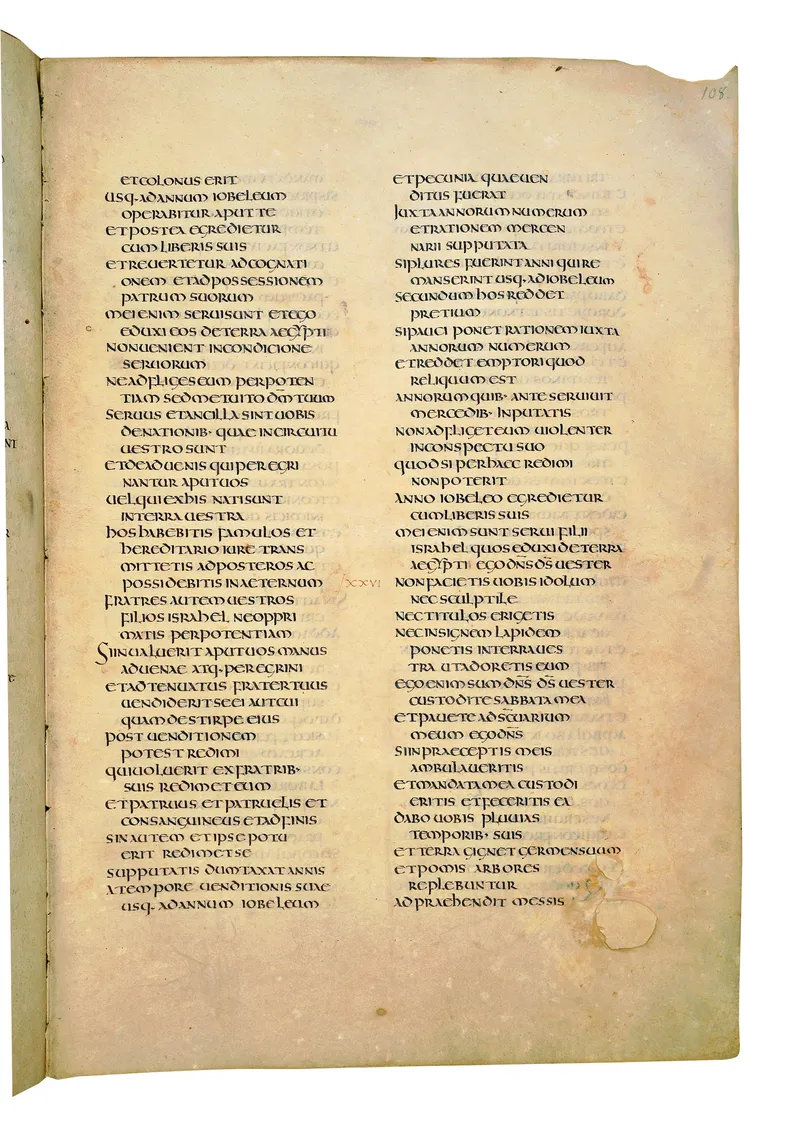 108
et colonus erit
usq· ad annum iobeleum
operabitur aput te
et postea egredietur
cum liberis suis
et reuertetur ad cognati
onem et ad possessionem
patrum suorum
mei enim serui sunt et ego
eduxi eos de terra aegypti
non uenient in condicione
seruorum
ne adfliges eum per poten
tiam sed metuito dm̄ tuum
seruus et ancilla sint uobis
de nationib· quae in circuitu
uestro sunt
et de aduenis qui peregri
nantur aput uos
uel qui ex his nati sunt
in terra uestra
hos habebitis famulos et
hereditario iure trans
mittetis ad posteros ac
possidebitis in aeternum
fratres autem uestros
filios israhel ne oppri
matis per potentiam
Si inualuerit aput uos manus
aduenae atq· peregrini
et adtenuatus frater tuus
uendiderit se ei aut cui
quam de stirpe eius
post uenditionem
potest redimi
qui uoluerit ex fratrib·
suis redimet eum
et patruus et patruelis et
consanguineus et adfinis
sin autem et ipse potu
erit redimet se
supputatis dumtaxat annis
a tempore uenditionis suae
usq· ad annum iobeleum
et pecunia qua uen
ditus fuerat
iuxta annorum numerum
et rationem mercen
narii supputata
si plures fuerint anni qui re
manserint usq· ad iobeleum
secundum hos reddet
pretium
si pauci ponet rationem iuxta
annorum numerum
et reddet emptori quod
reliquum est
annorum quib· ante seruiuit
mercedib· inputatis
non adfliget eum uiolenter
in conspectu suo
quod si per haec redimi
non poterit
anno iobeleo egredietur
cum liberis suis
mei enim sunt serui filii
israhel quos eduxi de terra
aegypti ego dn̄s ds̄ uester
XXVI non facietis uobis idolum
nec sculptile
nec titulos erigetis
nec insignem lapidem
ponetis in terra ues
tra ut adoretis eum
ego enim sum dn̄s ds̄ uester
custodite sabbata mea
et pauete ad sc̄uarium
meum ego dn̄s
si in praeceptis meis
ambulaueritis
et mandata mea custodi
eritis et feceritis ea
dabo uobis pluuias
temporib· suis
et terra gignet germen suum
et pomis arbores
replebuntur
adpraehendit messis